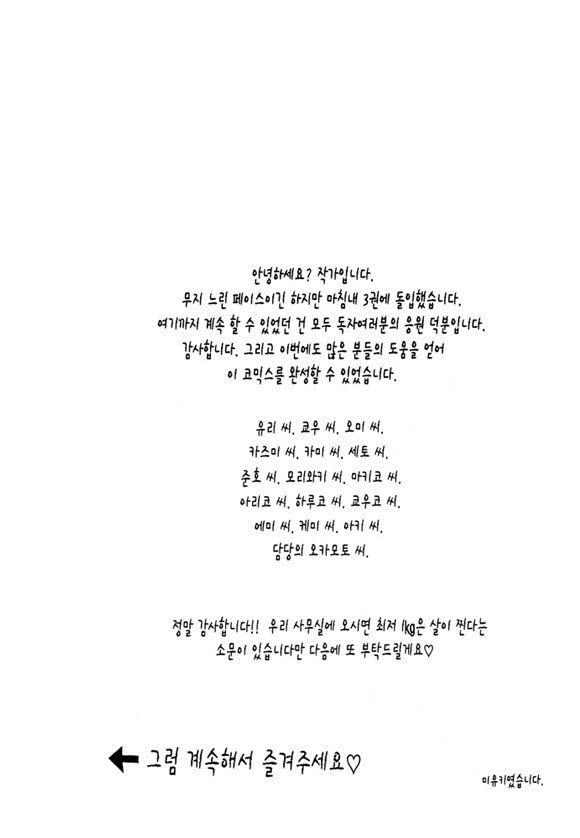 안녕하세요? 작가입니다.
무지 느린 페이스이긴 하지만 마침내 3권에 돌입했습니다.
여기까지 계속 할 수 있었던 건 모두 독자여러분의 응원 덕분입니다.
감사합니다. 그리고 이번에도 많은 분들의 도움을 얻어
이 코믹스를 완성할 수 있었습니다.
유리 씨. 쿄우 씨. 오미 씨.
카즈미 씨. 카미 씨. 세토 씨.
준호 씨. 모리와키 씨. 마키코 씨.
아리코 씨. 하루코 씨. 쿄우코 씨.
에미 씨. 케미 씨. 아키 씨.
담당의 오카모토 씨.
정말 감사합니다!! 우리 사무실에 오시면 최저 1kg은 살이 찐다는
소문이 있습니다만 다음에 또 부탁드릴게요♡
← 그럼 계속해서 즐겨주세요♡
미유키였습니다.